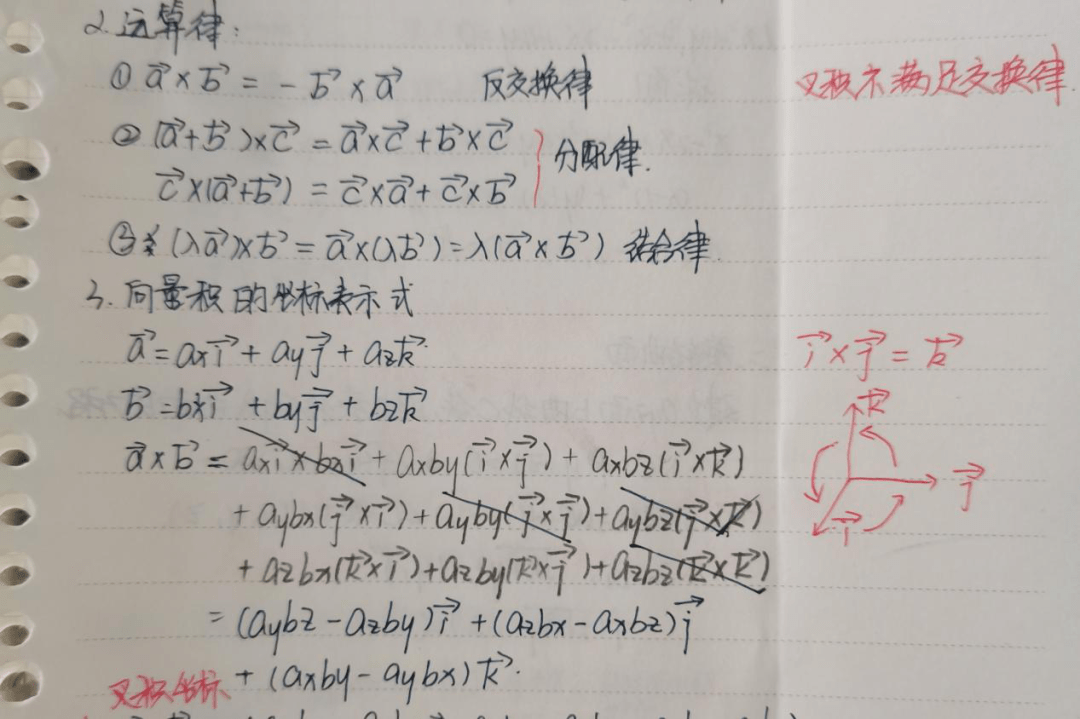 2. 运算律:
① a⃗ × b⃗ = - b⃗ × a⃗ 反交换律 叉积不满足交换律.
② (a⃗+b⃗)×c⃗ = a⃗×c⃗ + b⃗×c⃗
c⃗×(a⃗+b⃗) = c⃗×a⃗ + c⃗×b⃗ 分配律.
③ (λa⃗)×b⃗ = a⃗×(λb⃗) = λ(a⃗×b⃗) 结合律.
3. 向量积的坐标表示式
a⃗ = axi⃗ + ayj⃗ + azk⃗
i⃗ × j⃗ = k⃗
b⃗ = bxi⃗ + byj⃗ + bzk⃗
k⃗
a⃗×b⃗ = axi⃗×bxi⃗ + axby(i⃗×j⃗) + axbz(i⃗×k⃗)
j⃗
+ aybx(j⃗×i⃗) + ayby(j⃗×j⃗) + aybz(j⃗×k⃗)
i⃗
+ azbx(k⃗×i⃗) + azby(k⃗×j⃗) + azbz(k⃗×k⃗)
= (aybz - azby)i⃗ + (azbx - axbz)j⃗
+ (axby - aybx)k⃗.
叉积坐标